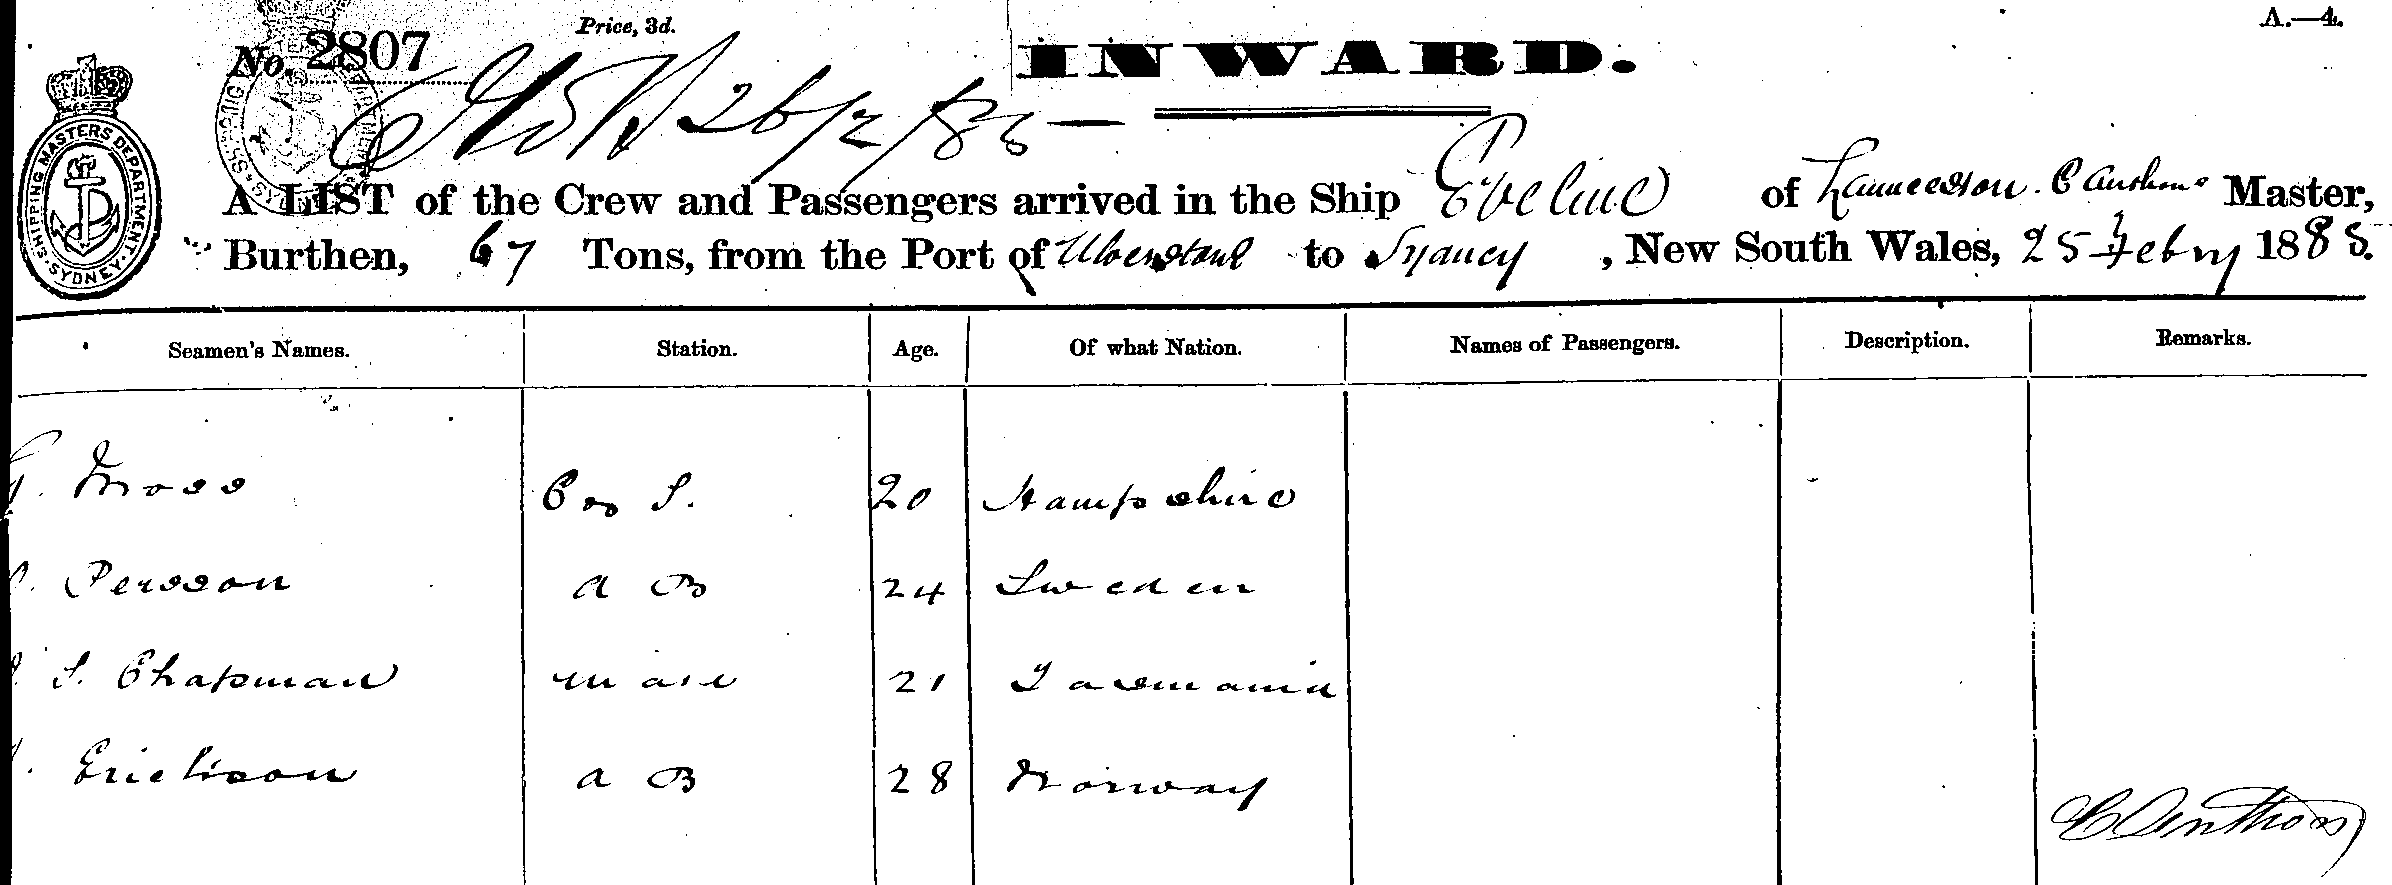 Price, 3d.
A.—4.
No. 2807
INWARD.
26/2/85
SHIPPING MASTERS DEPARTMENT SYDNEY
A LIST of the Crew and Passengers arrived in the Ship Eveline of Launceston. C Anthony Master,
Burthen, 67 Tons, from the Port of Ulverstone to Sydney, New South Wales, 25 Febry 1885.
Seamen's Names. Station. Age. Of what Nation. Names of Passengers. Description. Remarks.
G. Moss 20 Hampshire
Persson A B 24 Sweden
S. Chapman mate 21 Tasmania
Erickson A B 28 Norway
C Anthony